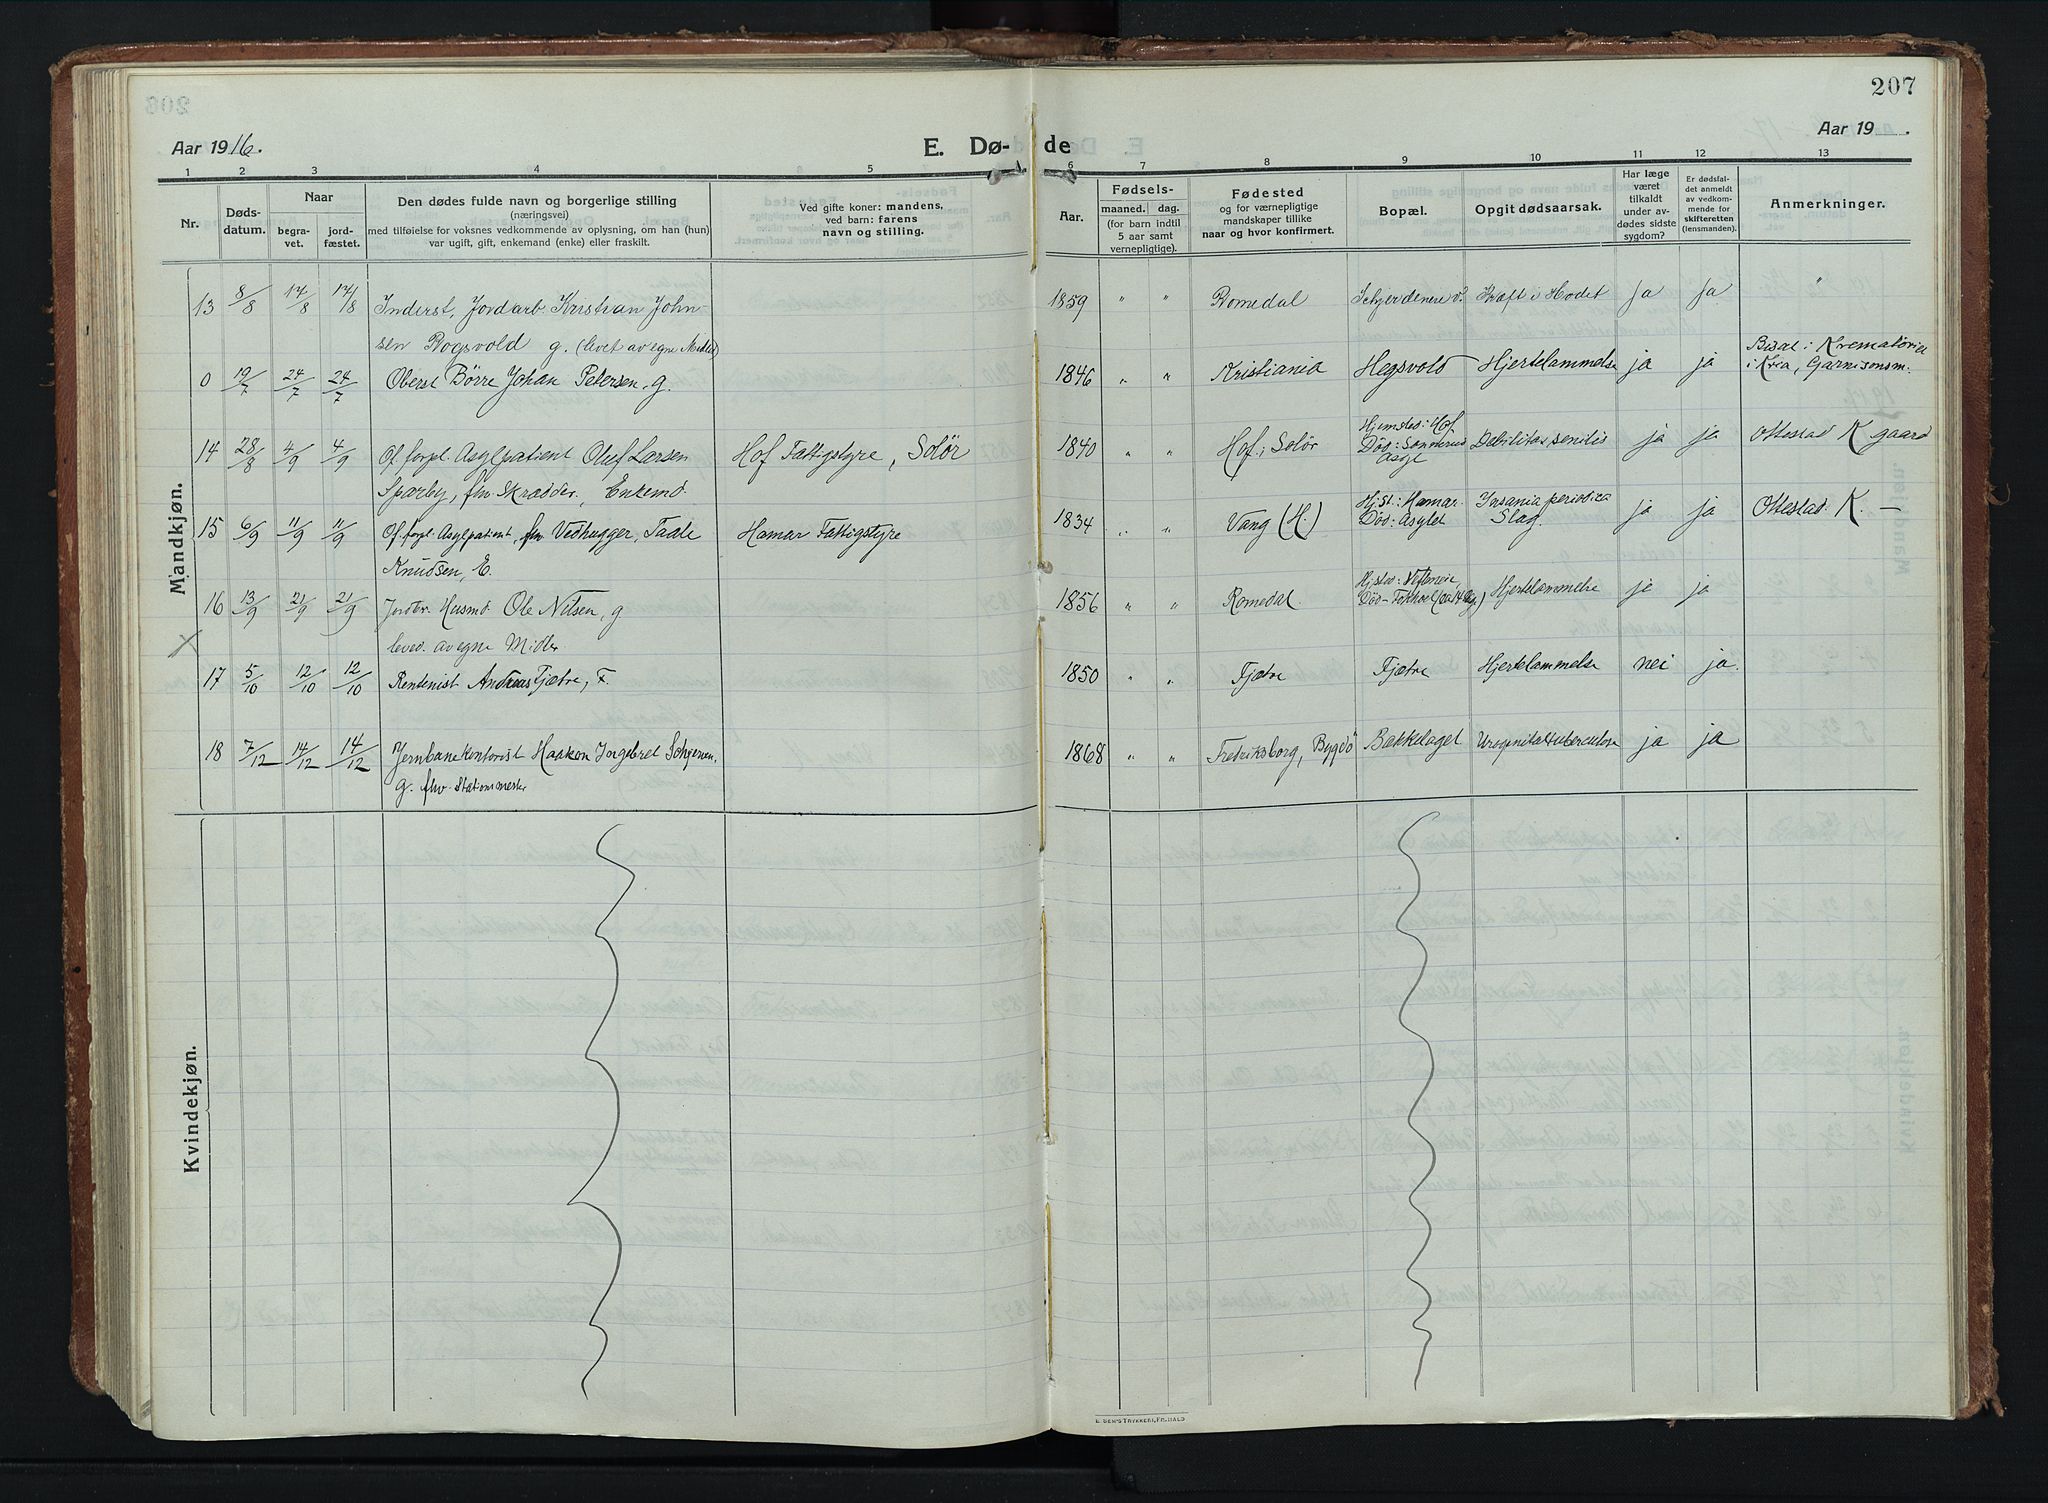 207
Aar 1916.
E. Dø-
de
Aar 19 .
1 2 3 4 5 6 7 8 9 10 11 12 13
Nr.
Døds-
datum.
Naar
begra-
vet.
jord-
fæstet.
Den dødes fulde navn og borgerlige stilling
(næringsvei)
med tilføielse for voksnes vedkommende av oplysning, om han (hun)
var ugift, gift, enkemand (enke) eller fraskilt.
Ved gifte koner: mandens,
ved barn: farens
navn og stilling.
Aar.
Fødsels-
maaned. dag.
(for barn indtil
5 aar samt
vernepligtige).
Fødested
og for værnepligtige
mandskaper tillike
naar og hvor konfirmert.
Bopæl.
Opgit dødsaarsak.
Har læge
været
tilkaldt
under av-
dødes sidste
sygdom?
Er dødsfal-
det anmeldt
av vedkom-
mende for
skifteretten
(lensmanden).
Anmerkninger.
Mandkjøn.
13 8/8 14/8 14/8 Inderst, Jordarb. Kristian John- 1859 " " Romedal Kræft i Hodet ja ja "
sen Rogsvold g. (levet av egne Midler)
0 19/7 24/7 24/7 Oberst Börre Johan Petersen, g. 1846 " " Kristiania Hegsvold Hjertelammelse ja ja Bisat i Krematoriet
i Kria, Garnisonsm.
14 28/8 4/9 4/9 Of. forpl. Asylpatient Oluf Larsen Hof Fattigstyre, Solör 1840 " " Hof i Solör Hjemsted: Hof Debilitas senilis ja ja Ottestad K gaard
Död: Sommerud
Asyl
Sparby, fhv. Skrædder, Enkemd.
15 6/9 11/9 11/9 Of. forpl. Asylpatient, fhv Vedhugger, Taale Hamar Fattigstyre 1834 " " Vang (H.) Hjst: Hamar Insania periodica ja ja Ottestad K. —
Död: Asylet Slag.
Knudsen, E.
16 13/9 21/9 21/9 Jordbr. Husmd Ole Nilsen, g 1856 " " Romedal Hjertelammelse ja ja
leved. av egne Midler
17 5/10 12/10 12/10 Rentenist Andreas Fjætre, F. 1850 " " Fjætre Fjætre Hjertelammelse nei ja.
18 7/12 14/12 14/12 Jernbanekontorist Haakon Ingebret Schjerven, 1868 " " Fredriksborg, Bygdö Bækkelaget Urogenitaltuberculose ja ja
g. fhv. Stationsmester
Kvindekjøn.